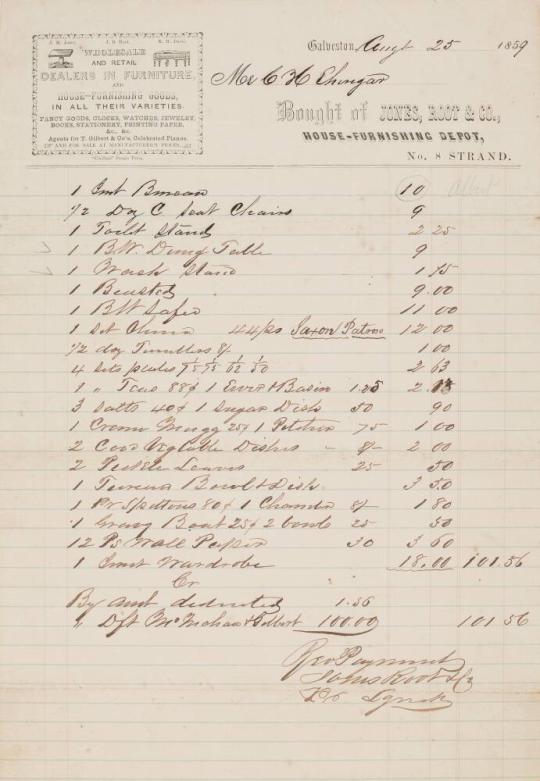 J. M. Jones. J. B. Root. R. H. Davis.
WHOLESALE
AND RETAIL
DEALERS IN FURNITURE,
AND
HOUSE-FURNISHING GOODS,
IN ALL THEIR VARIETIES.
FANCY GOODS, CLOCKS, WATCHES, JEWELRY,
BOOKS, STATIONERY, PRINTING PAPER,
&c., &c.
Agents for T. Gilbert & Co's. Celebrated Pianos,
FOR SALE AT MANUFACTURER'S PRICES.
"Civilian" Steam Press.
Galveston, Augt 25 1859
Mr C H
Bought of JONES, ROOT & CO.,
HOUSE-FURNISHING DEPOT,
No. 8 STRAND.
1 Imt Bureau 10
1/2 Doz C Seat Chairs 9
1 Toilet Stand 2 25
1 B.W. Dining Table 9
1 Wash Stand 1 75
1 Beasted 9.00
1 BW Safe 11 00
1 Set China 44 ps Saxon Patron 12 00
1/2 doz Tumblers 1 00
4 sets plates 2 63
1 " Teas 88¢ 1 Ewer & Basin 1.25 2.13
3 Salts 40¢ 1 Sugar Dish 50 90
1 Cream Mugg 25¢ 1 Pitcher 75 1 00
2 Covd Vegtable Dishes 2 00
2 Pickle Leaves 25 50
1 Tureen Bowl & Dish 3 50
1 Pr Spittons 80¢ 1 Chamber 1 80
1 Gravy Boat 25¢ 2 bowls 25 50
12 Ps Wall Paper 30 3 60
1 Imt Wardrobe 18.00 101.56
Cr
By amt deducted 1.56
" Dft 100.00 101.56
Rec Payment
Jones Root & Co
Lynch